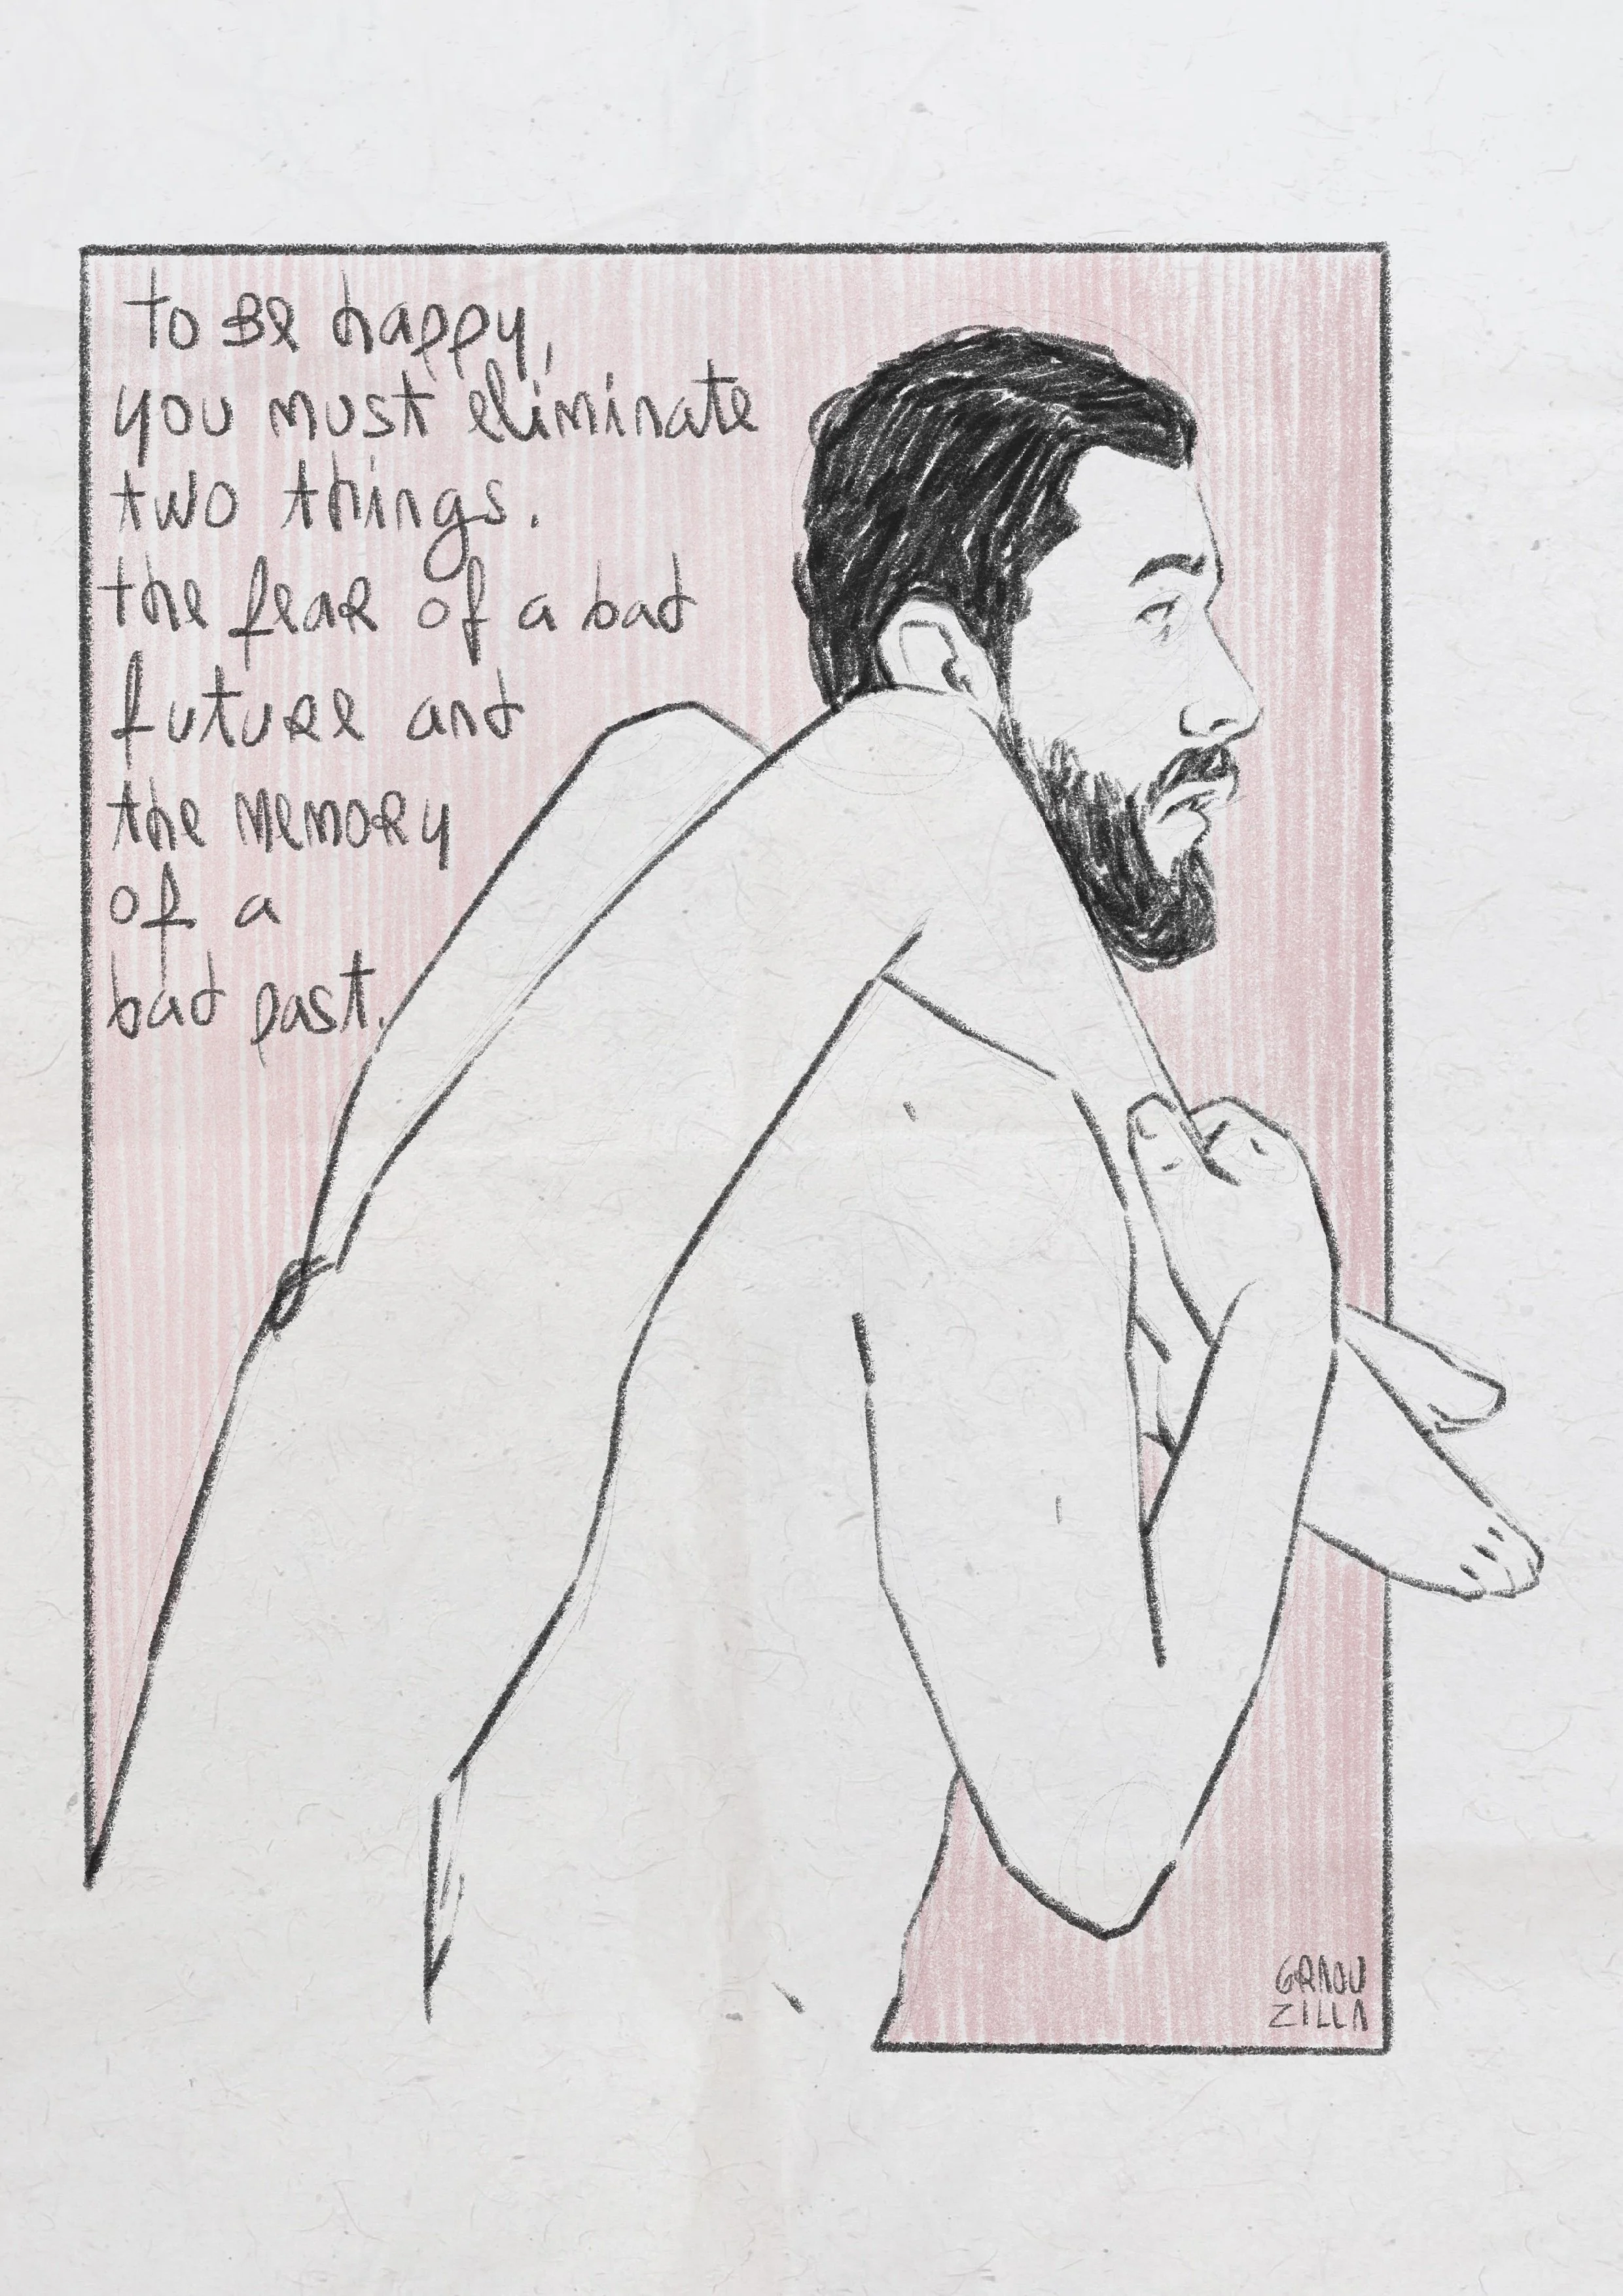 to Be happy,
you must eliminate
two things.
the fear of a bad
future and
the memory
of a
bad past.
GRAOU
ZILLA